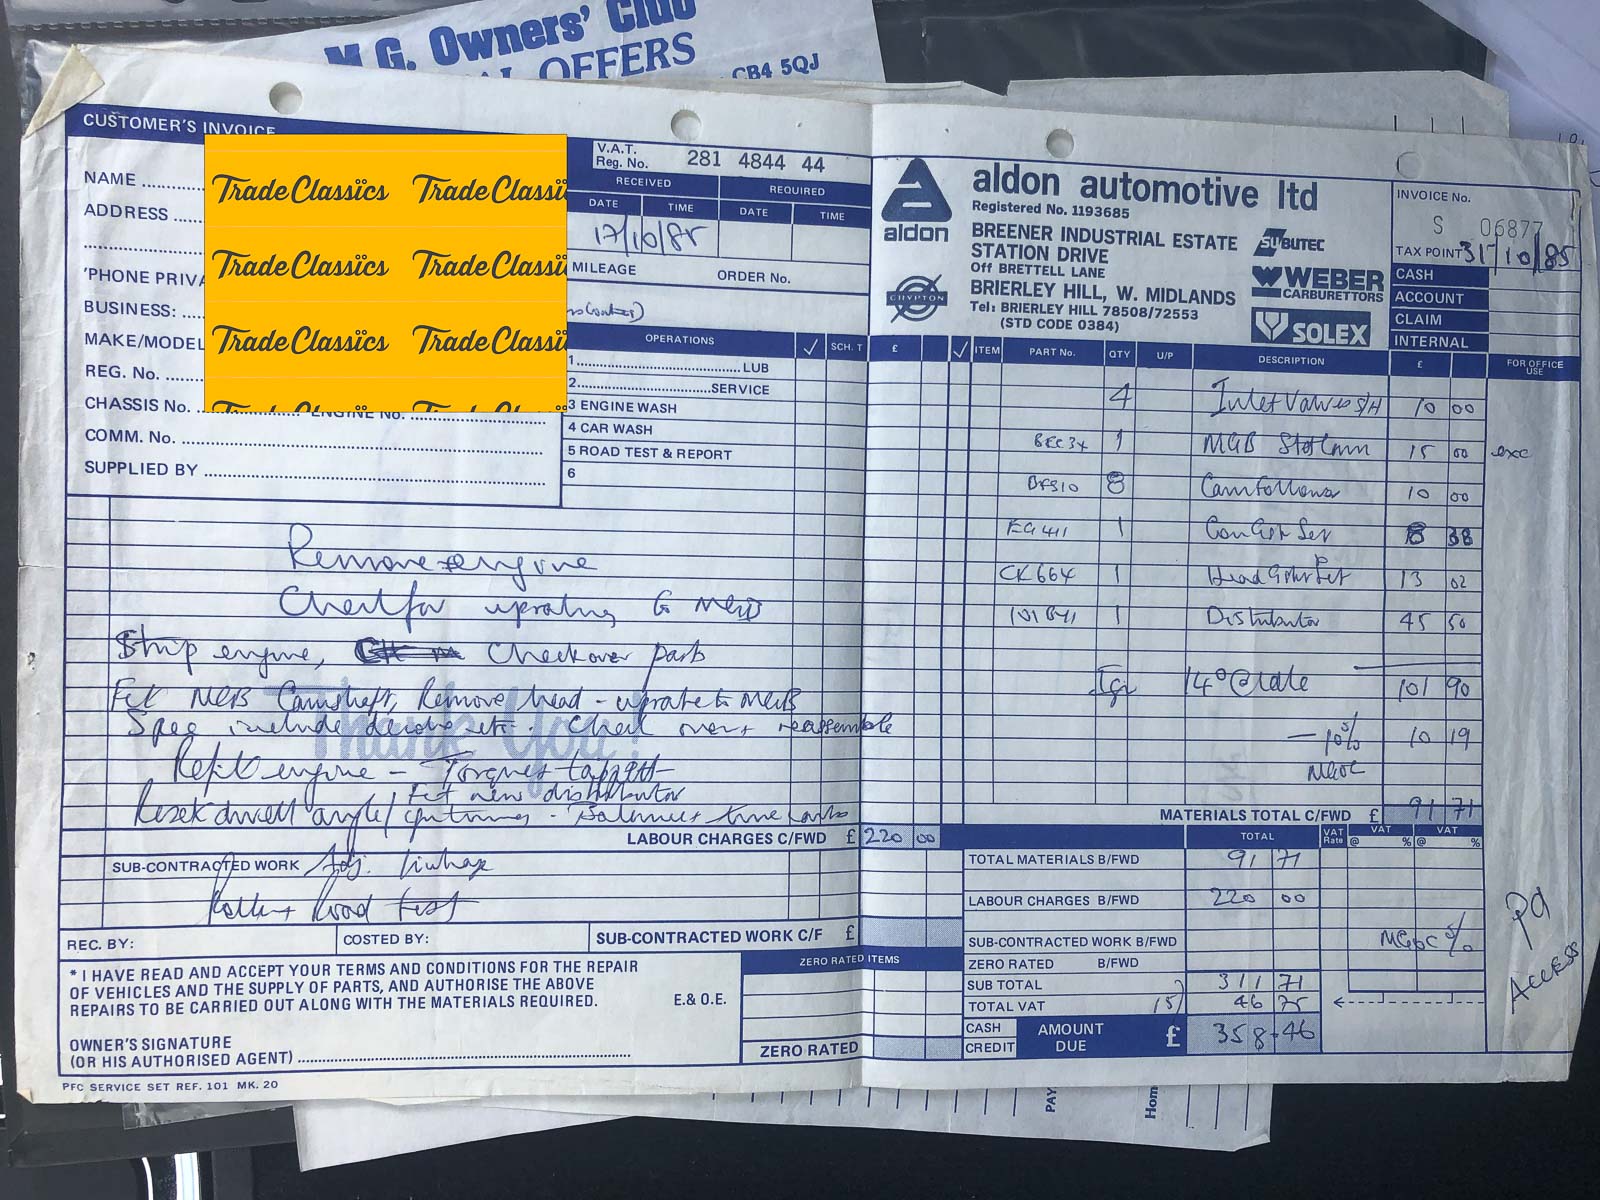 M.G. Owners' Club
OFFERS
CB4 5QJ
CUSTOMER'S INVOICE
NAME
ADDRESS
'PHONE PRIVA
BUSINESS:
MAKE/MODEL
REG. No.
CHASSIS No. ENGINE No.
COMM. No.
SUPPLIED BY
TradeClassics TradeClassi
TradeClassics TradeClassi
TradeClassics TradeClassi
V.A.T. Reg. No. 281 4844 44
RECEIVED REQUIRED
DATE TIME DATE TIME
17/10/85
MILEAGE ORDER No.
OPERATIONS ✓ SCH. T £
1 LUB
2 SERVICE
3 ENGINE WASH
4 CAR WASH
5 ROAD TEST & REPORT
6
Remove engine
Check for uprating to MGB
Strip engine, Checkover parts
Fit MGB Camshaft, Remove head - uprate to MGB
Spec include decoke etc. Check over & reassemble
Thank You!
Refit engine - Torque & tappets
Fit new distributor
Reset dwell angle/ign timing - Balance & tune carbs
LABOUR CHARGES C/FWD £ 220 00
SUB-CONTRACTED WORK Adj. linkage
Rolling Road test
REC. BY: COSTED BY: SUB-CONTRACTED WORK C/F £
* I HAVE READ AND ACCEPT YOUR TERMS AND CONDITIONS FOR THE REPAIR
OF VEHICLES AND THE SUPPLY OF PARTS, AND AUTHORISE THE ABOVE
REPAIRS TO BE CARRIED OUT ALONG WITH THE MATERIALS REQUIRED. E.& O.E.
OWNER'S SIGNATURE
(OR HIS AUTHORISED AGENT)
ZERO RATED ITEMS
ZERO RATED
PFC SERVICE SET REF. 101 MK. 20
aldon
CRYPTON
aldon automotive ltd
Registered No. 1193685
BREENER INDUSTRIAL ESTATE
STATION DRIVE
Off BRETTELL LANE
BRIERLEY HILL, W. MIDLANDS
Tel: BRIERLEY HILL 78508/72553
(STD CODE 0384)
SU BUTEC
WEBER
CARBURETTORS
SOLEX
INVOICE No.
S 06877
TAX POINT 31/10/85
CASH
ACCOUNT
CLAIM
INTERNAL
✓ ITEM PART No. QTY U/P DESCRIPTION £ FOR OFFICE USE
4 Inlet Valves S/H 10 00
1 MGB Std Cam 15 00 exc
8 Cam followers 10 00
EG 411 1 Con Gsk Set 8 38
CK 664 1 Head Gskt Set 13 02
1 Distributor 45 50
Ign 14° @ idle 101 90
- 10% 10 19
MGOC
MATERIALS TOTAL C/FWD £ 91 71
TOTAL VAT Rate VAT @ % VAT @ %
TOTAL MATERIALS B/FWD 91 71
LABOUR CHARGES B/FWD 220 00
SUB-CONTRACTED WORK B/FWD MGOC %
ZERO RATED B/FWD
SUB TOTAL 311 71
TOTAL VAT 15 46 75
CASH CREDIT AMOUNT DUE £ 358-46
Pd
ACCESS
PAY
Hom